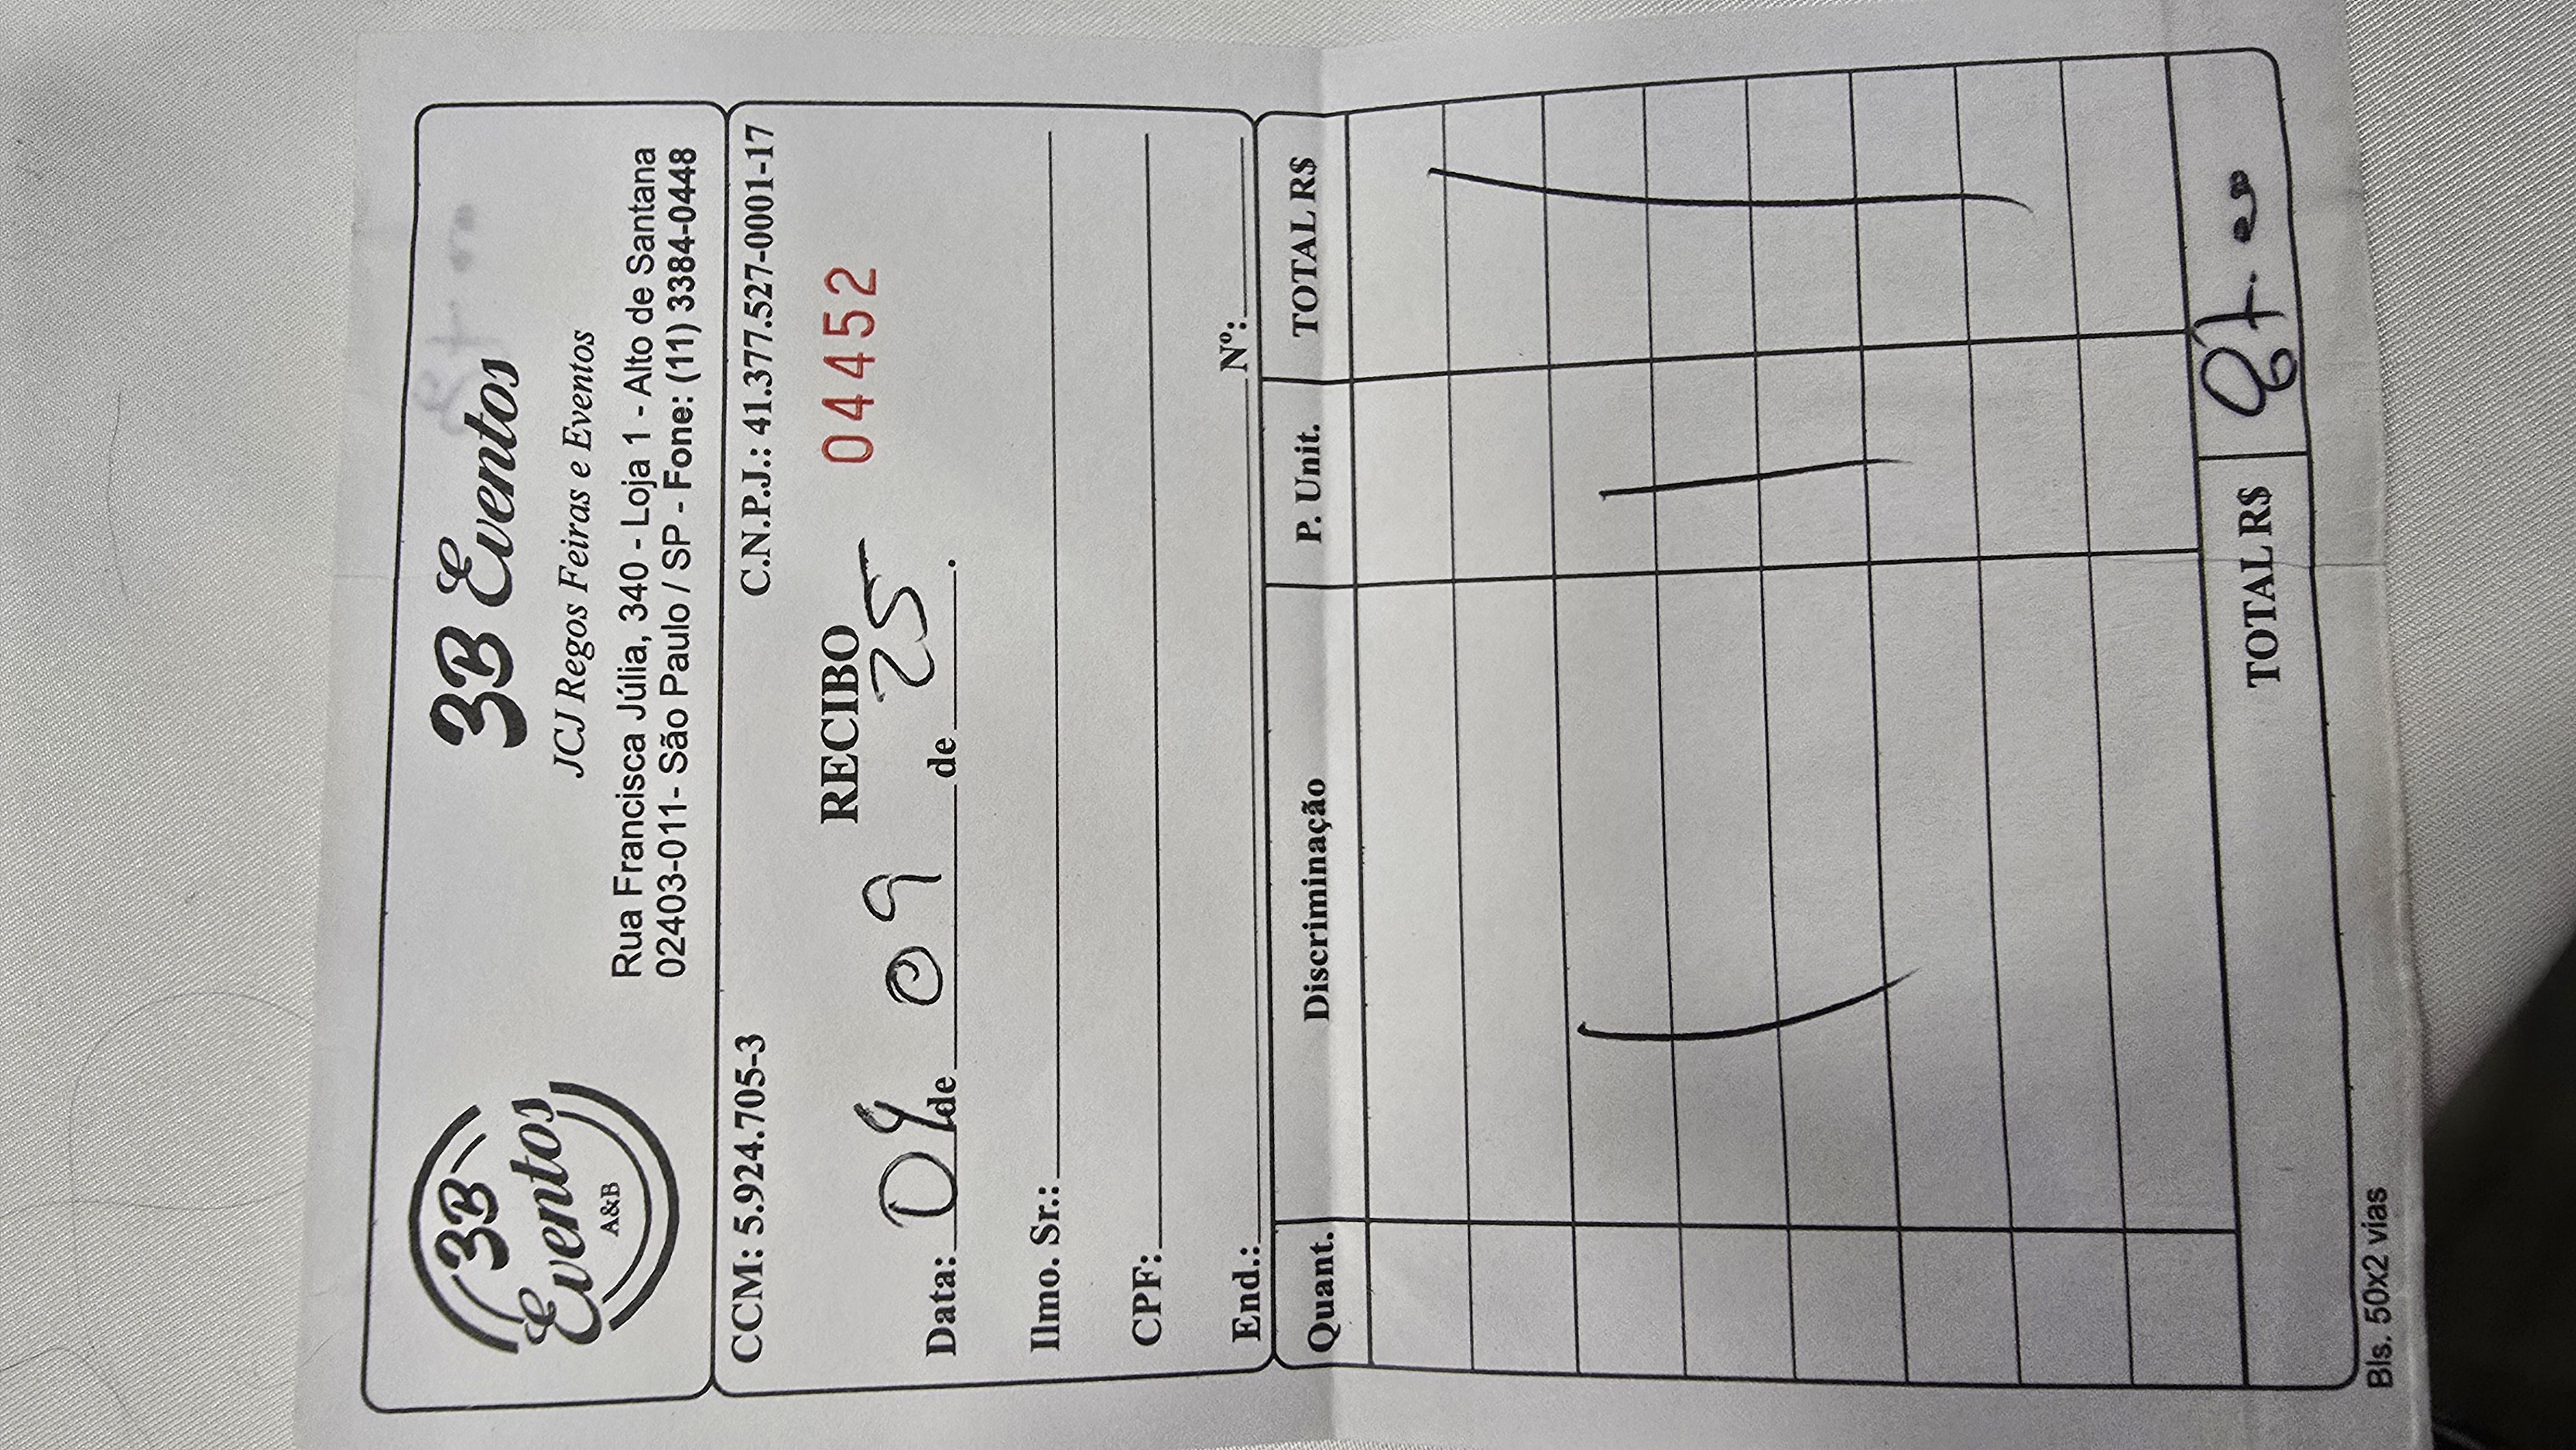 3B
Eventos
A&B
3B Eventos
JCJ Regos Feiras e Eventos
Rua Francisca Júlia, 340 - Loja 1 - Alto de Santana
02403-011- São Paulo / SP - Fone: (11) 3384-0448
CCM: 5.924.705-3 C.N.P.J.: 41.377.527-0001-17
RECIBO 04452
Data: 09 de 09 de 25.
Ilmo. Sr.:
CPF:
End.: Nº:
Quant. Discriminação P. Unit. TOTAL R$
TOTAL R$ 87.00
Bls. 50x2 vias